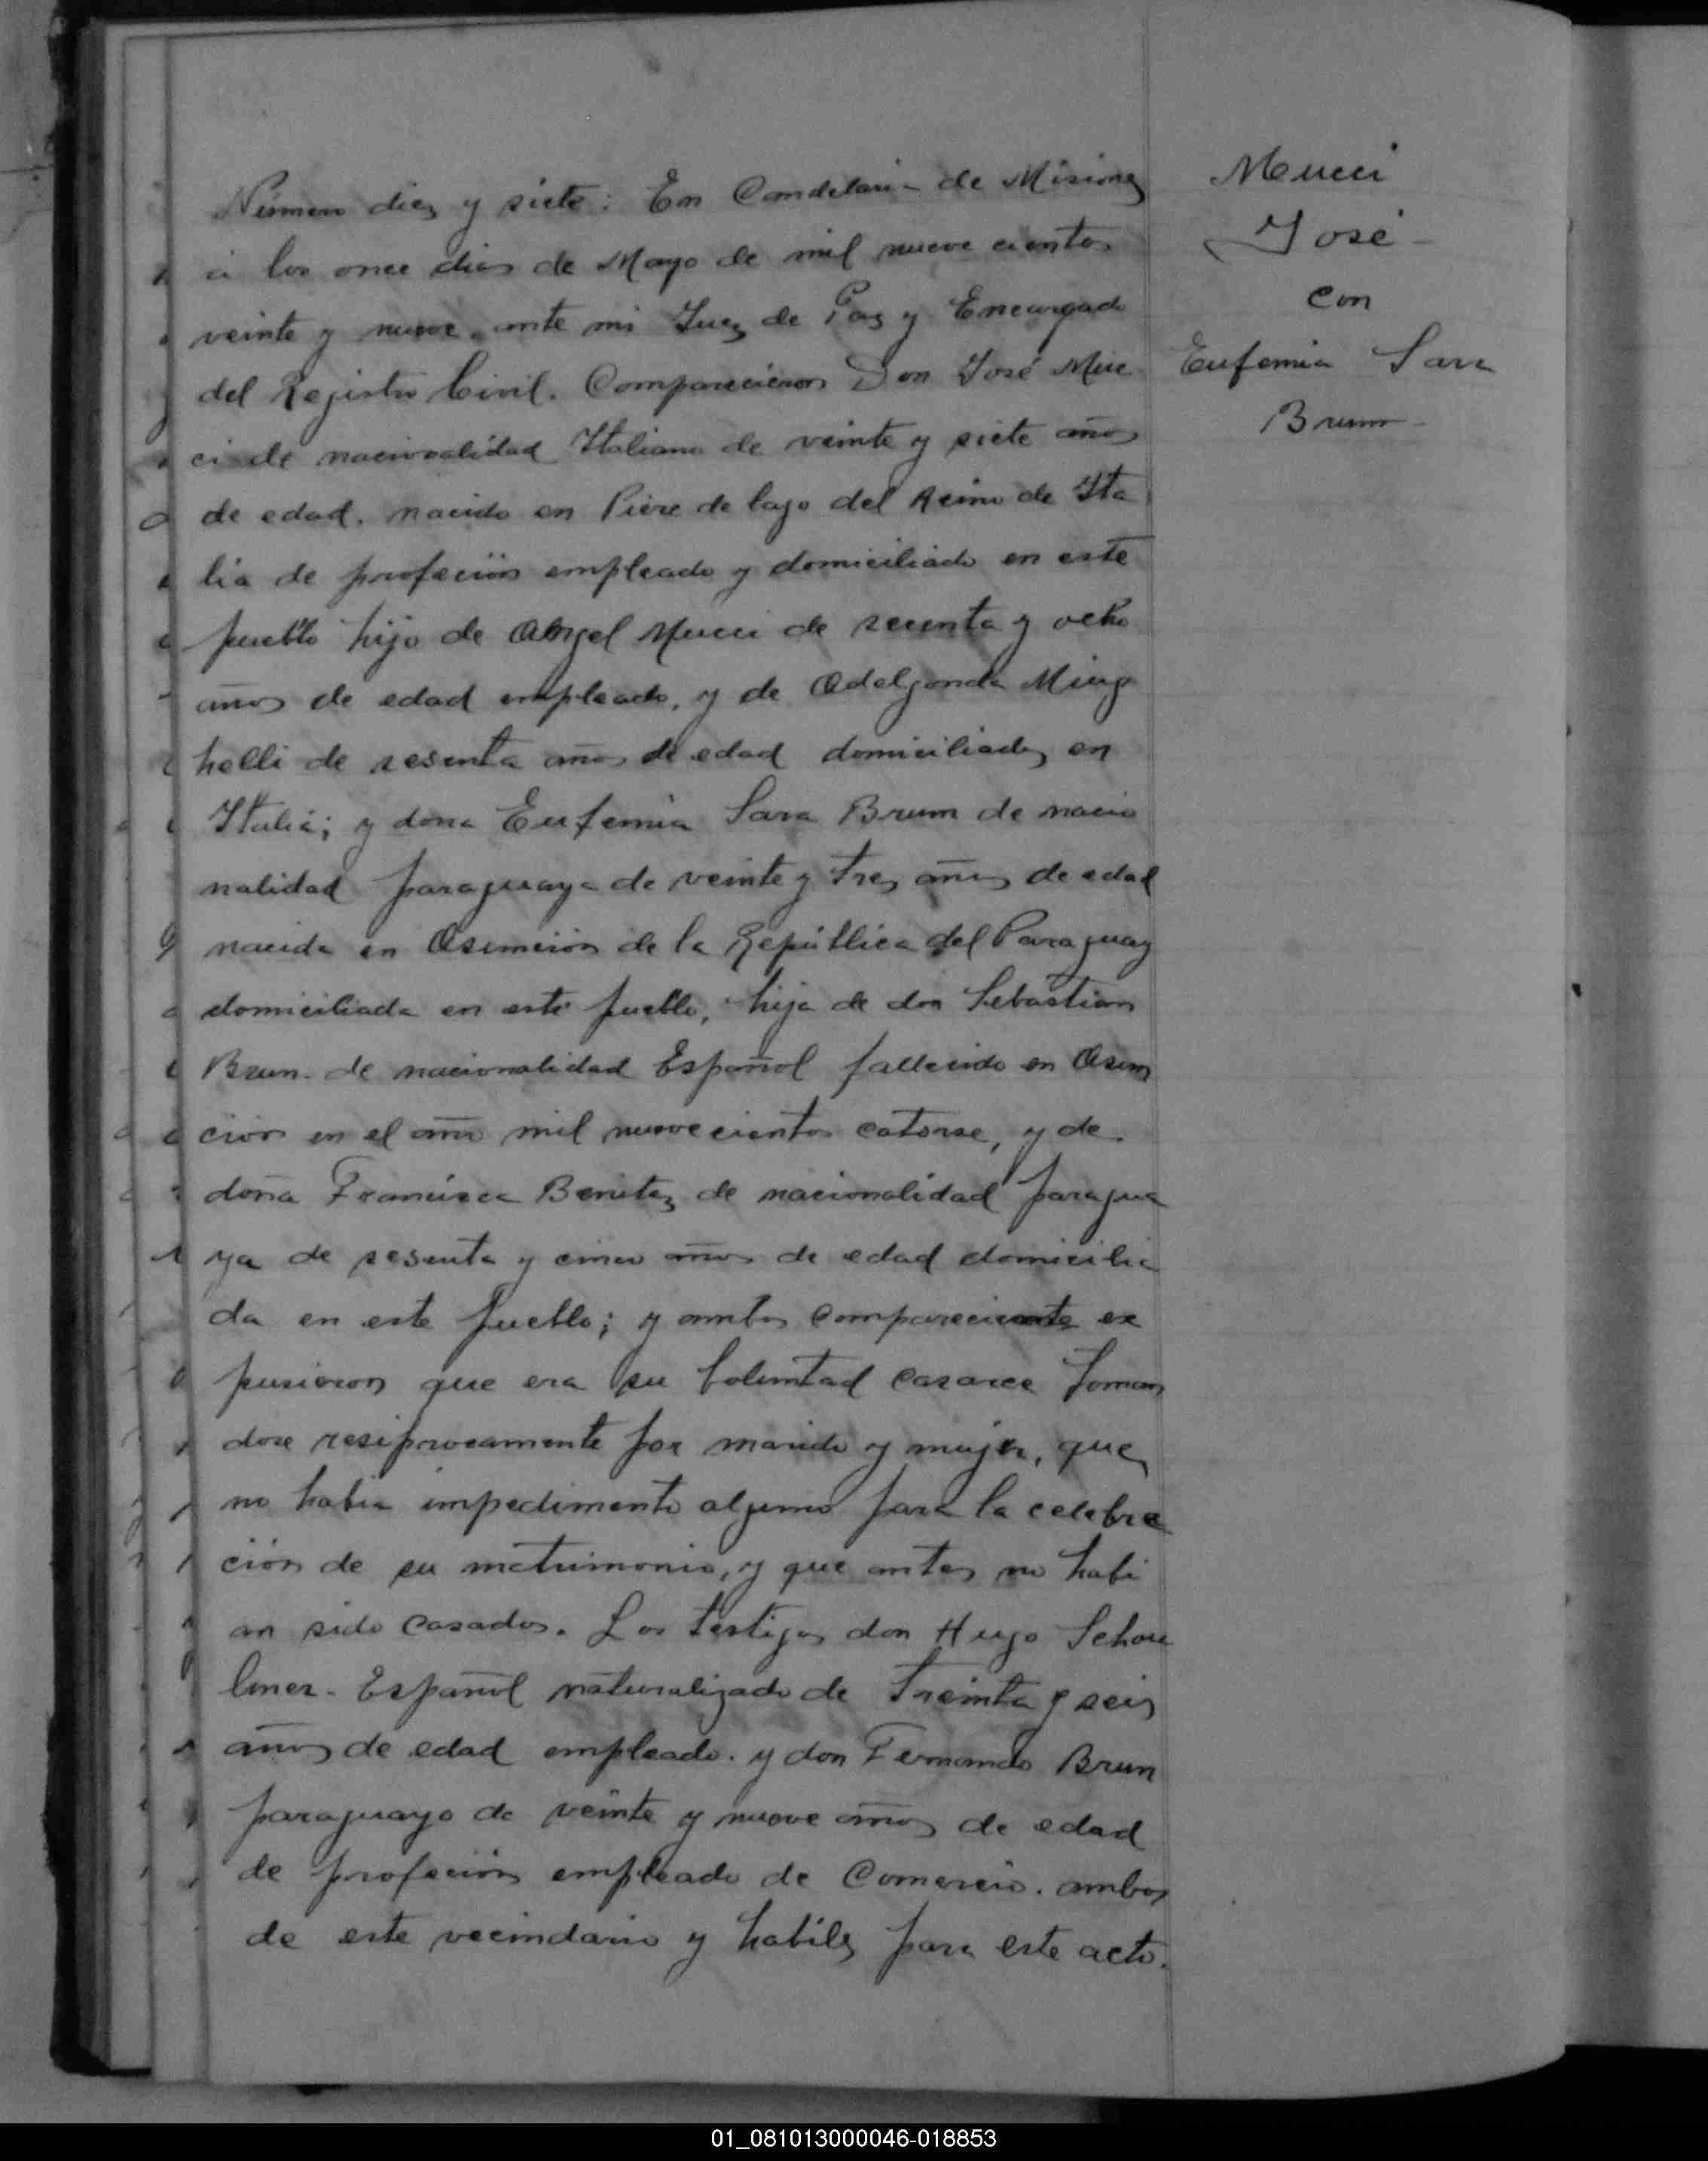 Número diez y siete: En Candelaria de Misiones
á los once dias de Mayo de mil nueve cientos
veinte y nueve ante mi Juez de Paz y Encargado
del Registro Civil. Comparecieron Don José Muc
ci de nacionalidad Italiana de veinte y siete años
de edad. nacido en Pieve de bajo del Reino de Ita
lia de profeción empleado y domiciliado en este
pueblo hijo de Angel Mucci de secenta y ocho
años de edad empleado, y de Adelgonda Ming
helli de sesenta años de edad domiciliados en
Italia; y doña Eufemia Sara Brum de nacio
nalidad paraguaya de veinte y tres años de edad
nacida en Asunción de la República del Paraguay
domiciliada en este pueblo, hija de don Sebastian
Brun. de nacionalidad Español fallecido en Asun
ción en el año mil nuevecientos catorse, y de.
doña Francisca Benitez de nacionalidad paragua
ya de sesenta y cinco años de edad domicilia
da en este pueblo; y ambos compareciente ex
pusieron que era su boluntad casarce toman
dose resiprocamente por marido y mujer, que
no habia impedimento alguno para la celebra
ción de su matrimonio, y que antes no habi
an sido casados. Los testigos don Hugo
Español naturalizado de treinta y seis
años de edad empleado. y don Fernando Brun
paraguayo de veinte y nueve años de edad
de profeción empleado de Comercio. ambos
de este vecindario y habiles para este acto.
Mucci
José
con
Eufemia Sara
Brum
01_081013000046-018853